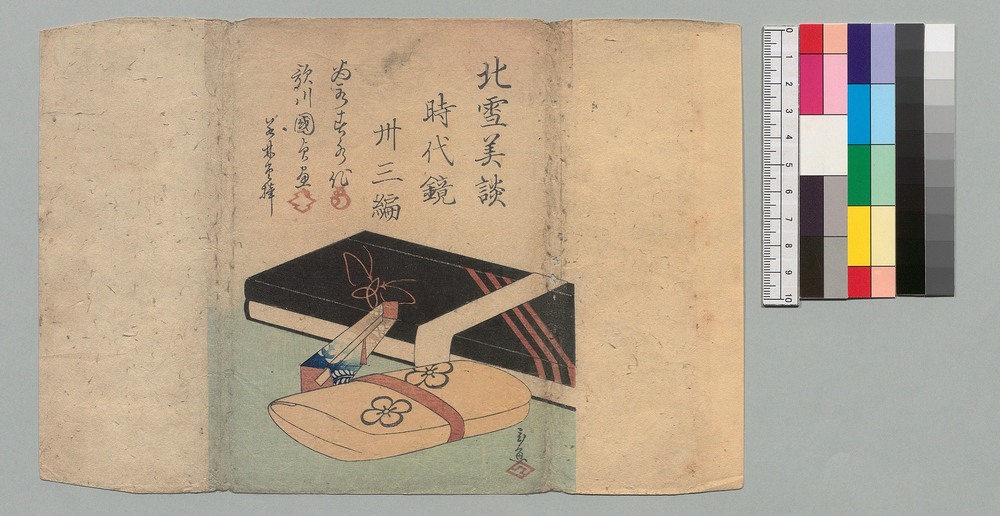 北雪美談
時代鏡
卅三編
為永春水作
歌川國貞画
若林堂梓
0
1
2
3
4
5
6
7
8
9
10